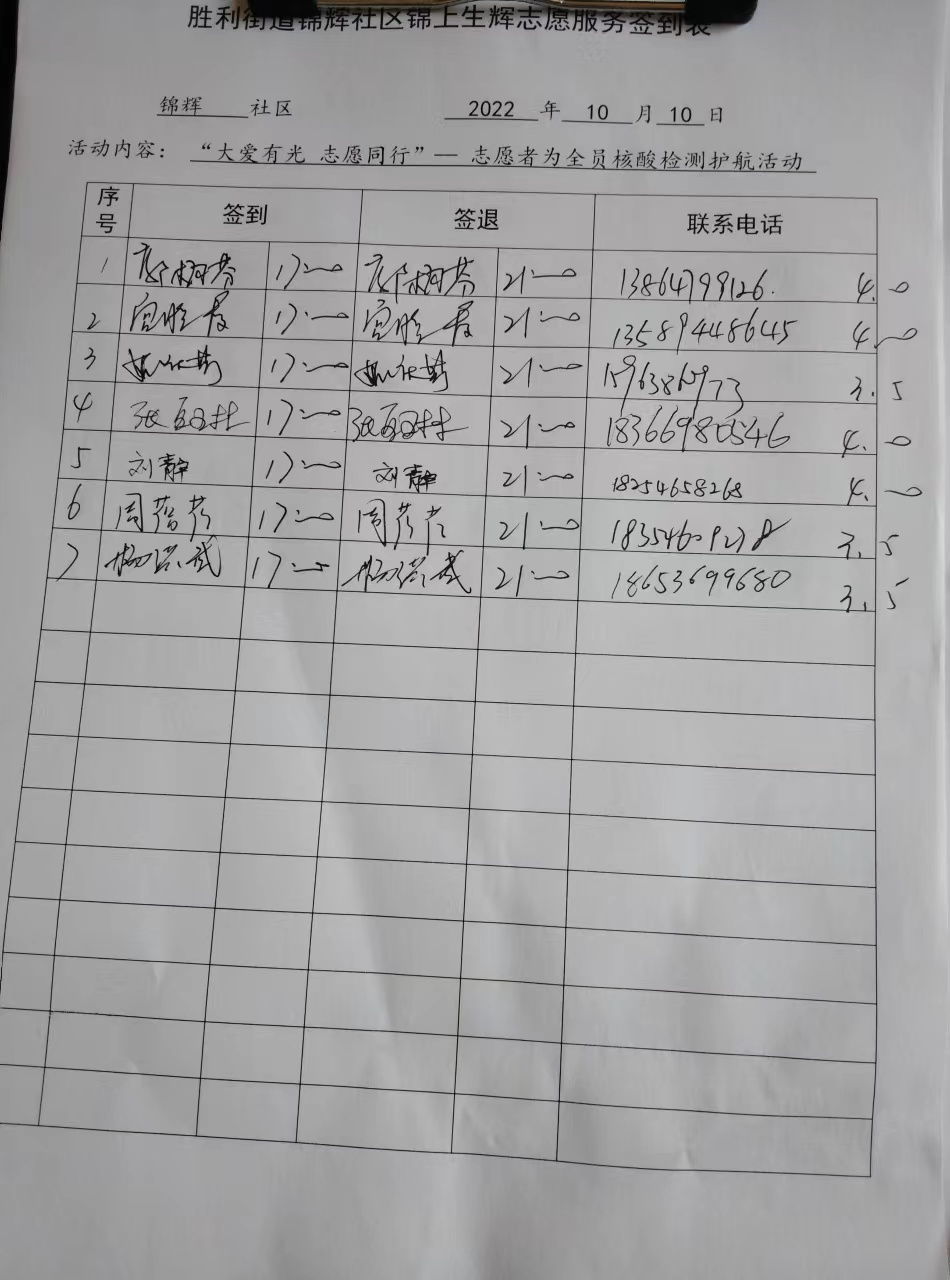 胜利街道锦辉社区锦上生辉志愿服务签到表
锦辉 社区 2022 年 10 月 10 日
活动内容： “大爱有光 志愿同行”— 志愿者为全员核酸检测护航活动
序号 签到 签退 联系电话
1 17:00 21:00 13864799126. 4.0
2 17:00 21:00 13589448645 4.0
3 17:00 21:00 3.5
4 17:00 21:00 18366980546 4.0
5 刘静 17:00 刘静 21:00 18254658268 4.0
6 17:00 21:00 3.5
7 21:00 18653699680 3.5